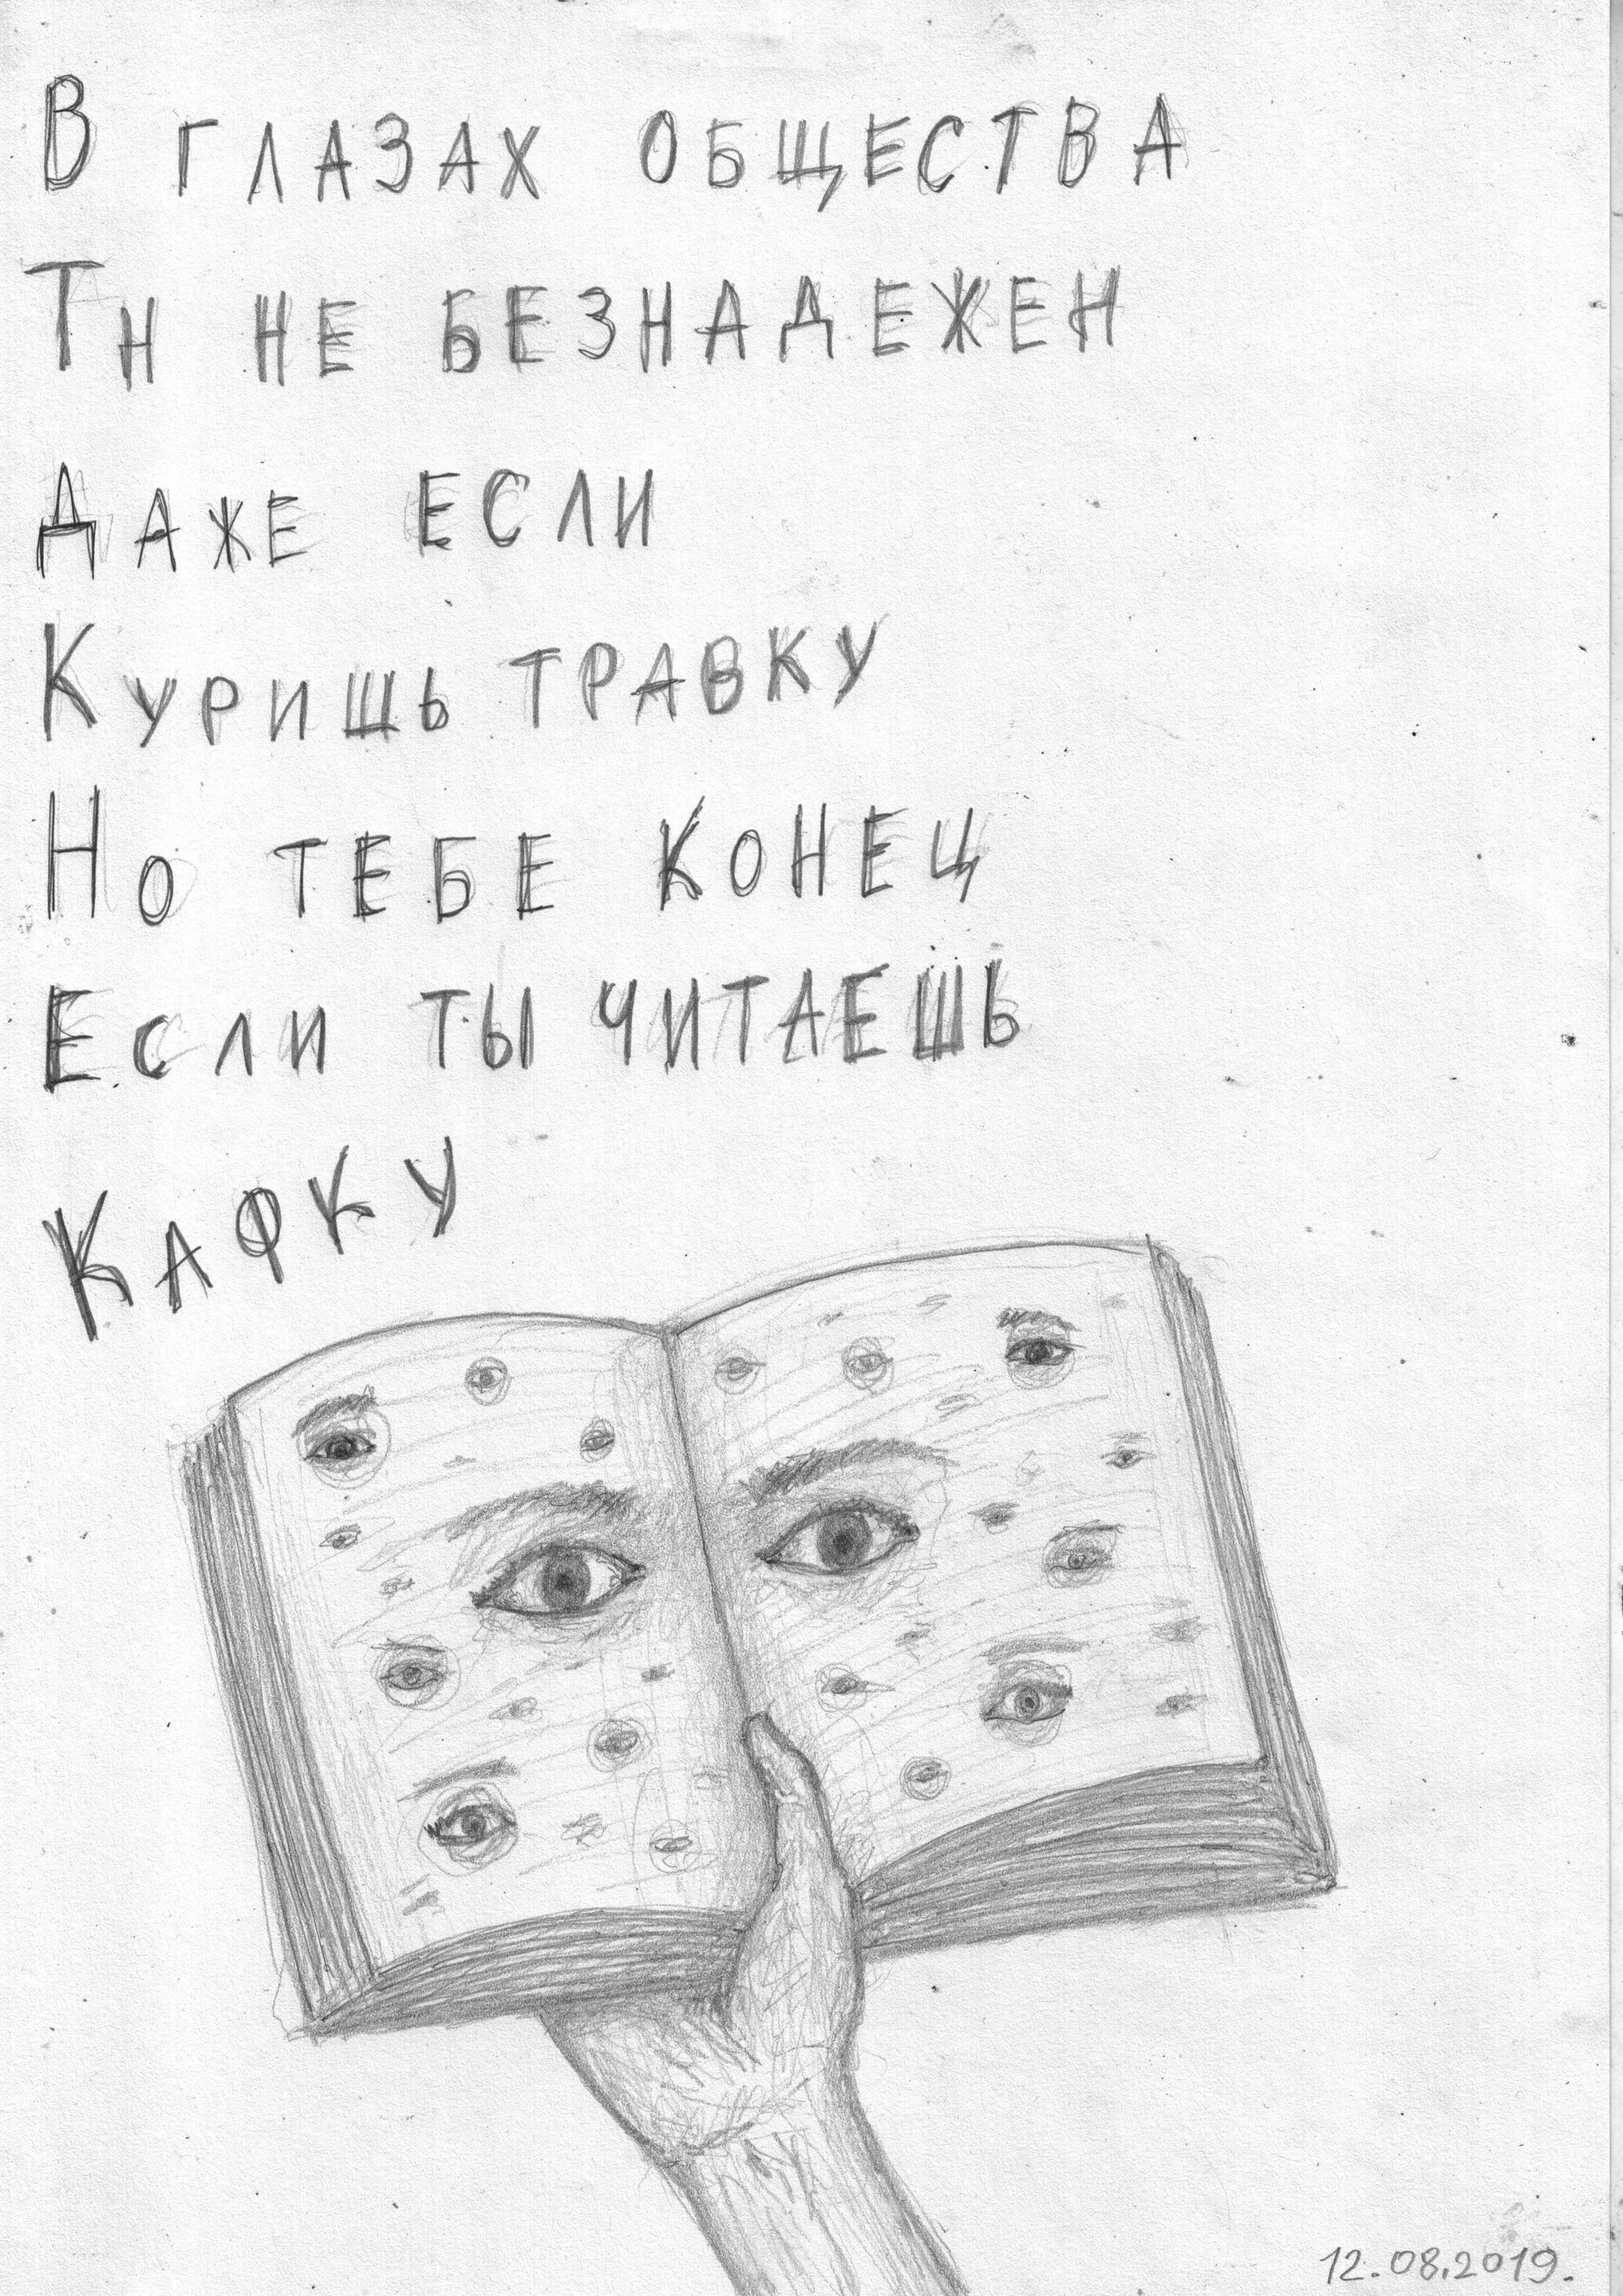 В ГЛАЗАХ ОБЩЕСТВА
ТН НЕ БЕЗНАДЕЖЕН
ДАЖЕ ЕСЛИ
КУРИШЬ ТРАВКУ
НО ТЕБЕ КОНЕЦ
ЕСЛИ ТЫ ЧИТАЕШЬ
КАФКУ
12.08.2019.